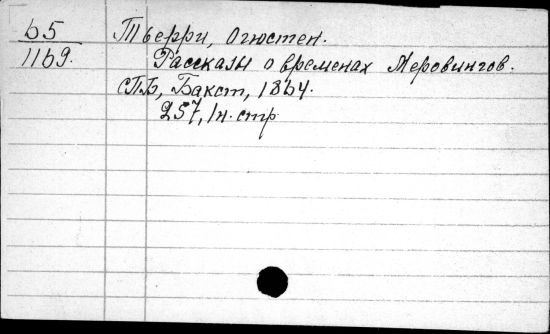 65
1169.
Тьерри, Огюстен.
Рассказы о временах Меровингов.
СПБ, Бакст, 1864.
257, 1н. стр